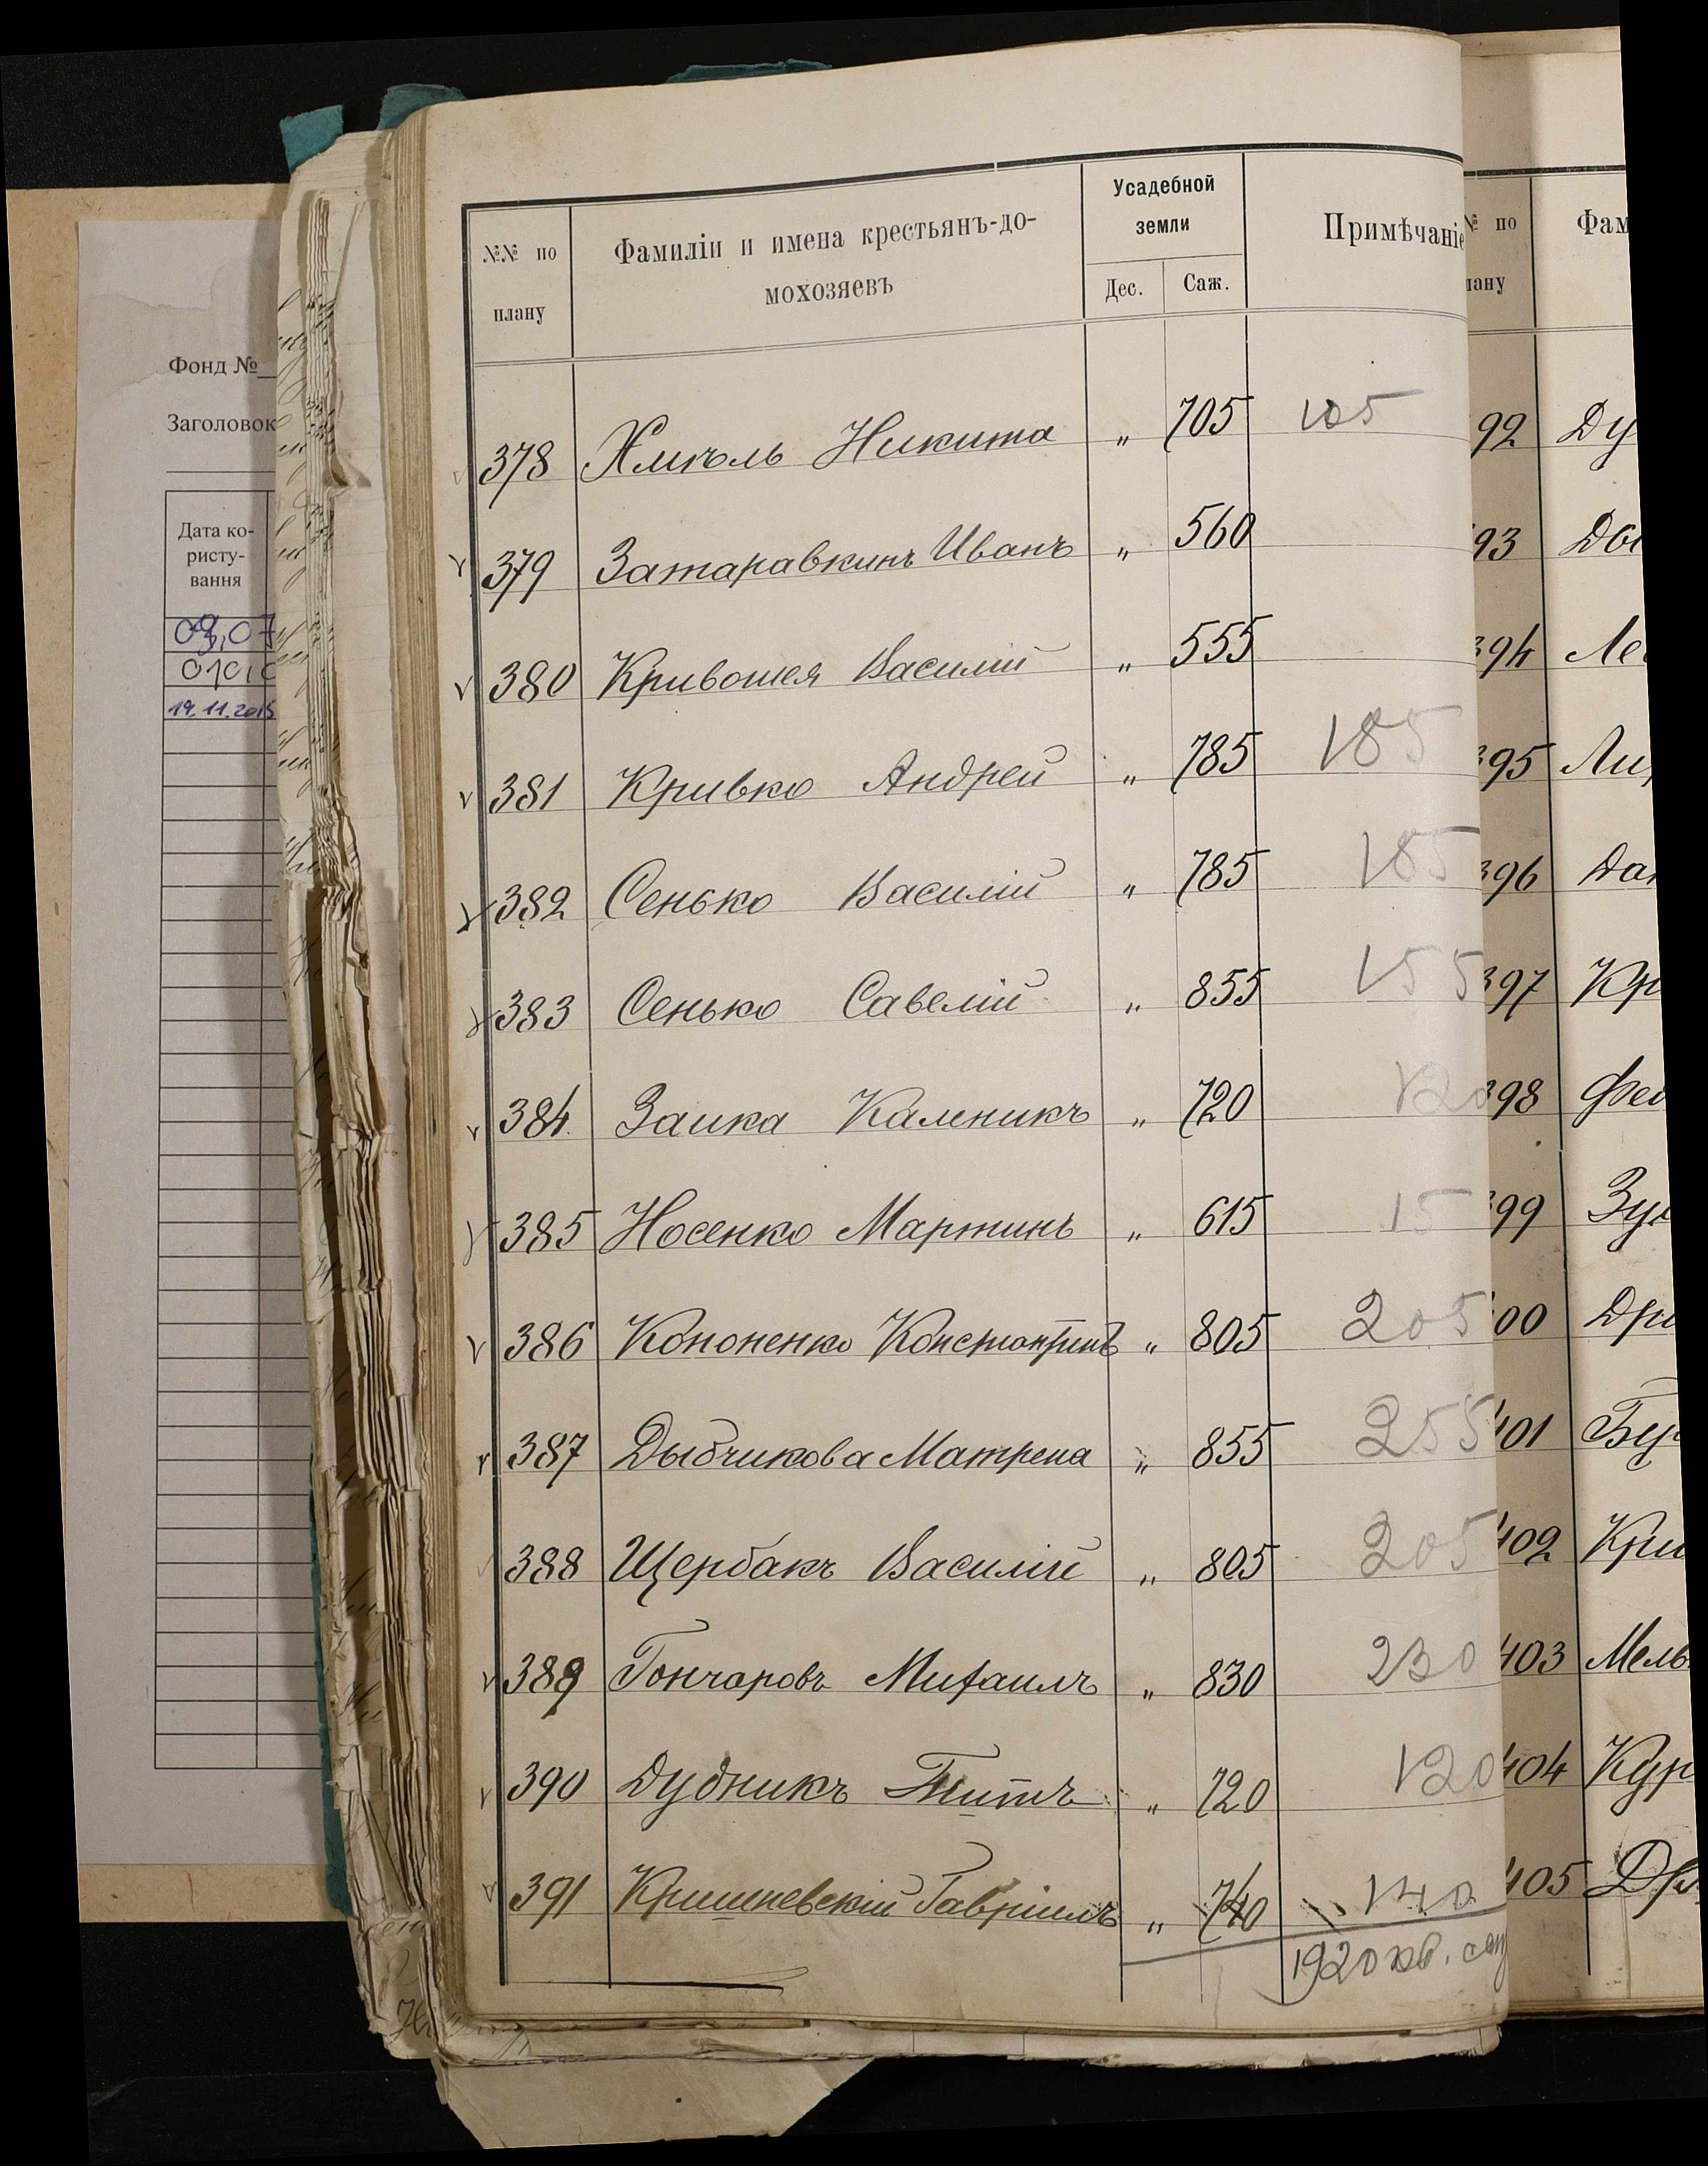 Фонд №
Заголовок
Дата ко-
ристу-
вання
09.07
19.11.2015
№№ по
плану
Фамиліи и имена крестьянъ-до-
мохозяевъ
Усадебной
земли
Дес. Саж.
Примѣчаніе
378 Хмѣль Никита " 705 105
379 Затаравкинъ Иванъ " 560
380 Кривошея Василій " 555
381 Кривко Андрей " 785 185
382 Сенько Василій " 785 185
383 Сенько Савелій " 855 155
384 Заика Каленикъ " 720 120
385 Носенко Мартинъ " 615 15
386 Кононенко Константинъ " 805 205
387 Дыбчикова Матрена " 855 255
388 Щербакъ Василій " 805 205
389 Гончаровъ Михаилъ " 830 230
390 Дудникъ Титъ " 720 120
391 Кришневскій Гавріилъ " 740 140
1920 кв. саж
№ по
лану
Фам
92 Ду
93
394 Ле
395 Ли
396 Да
397 Кр
398 Фед
399 Зу
400 Др
401 Бу
402 Кри
403 Мель
404 Кур
405 Др